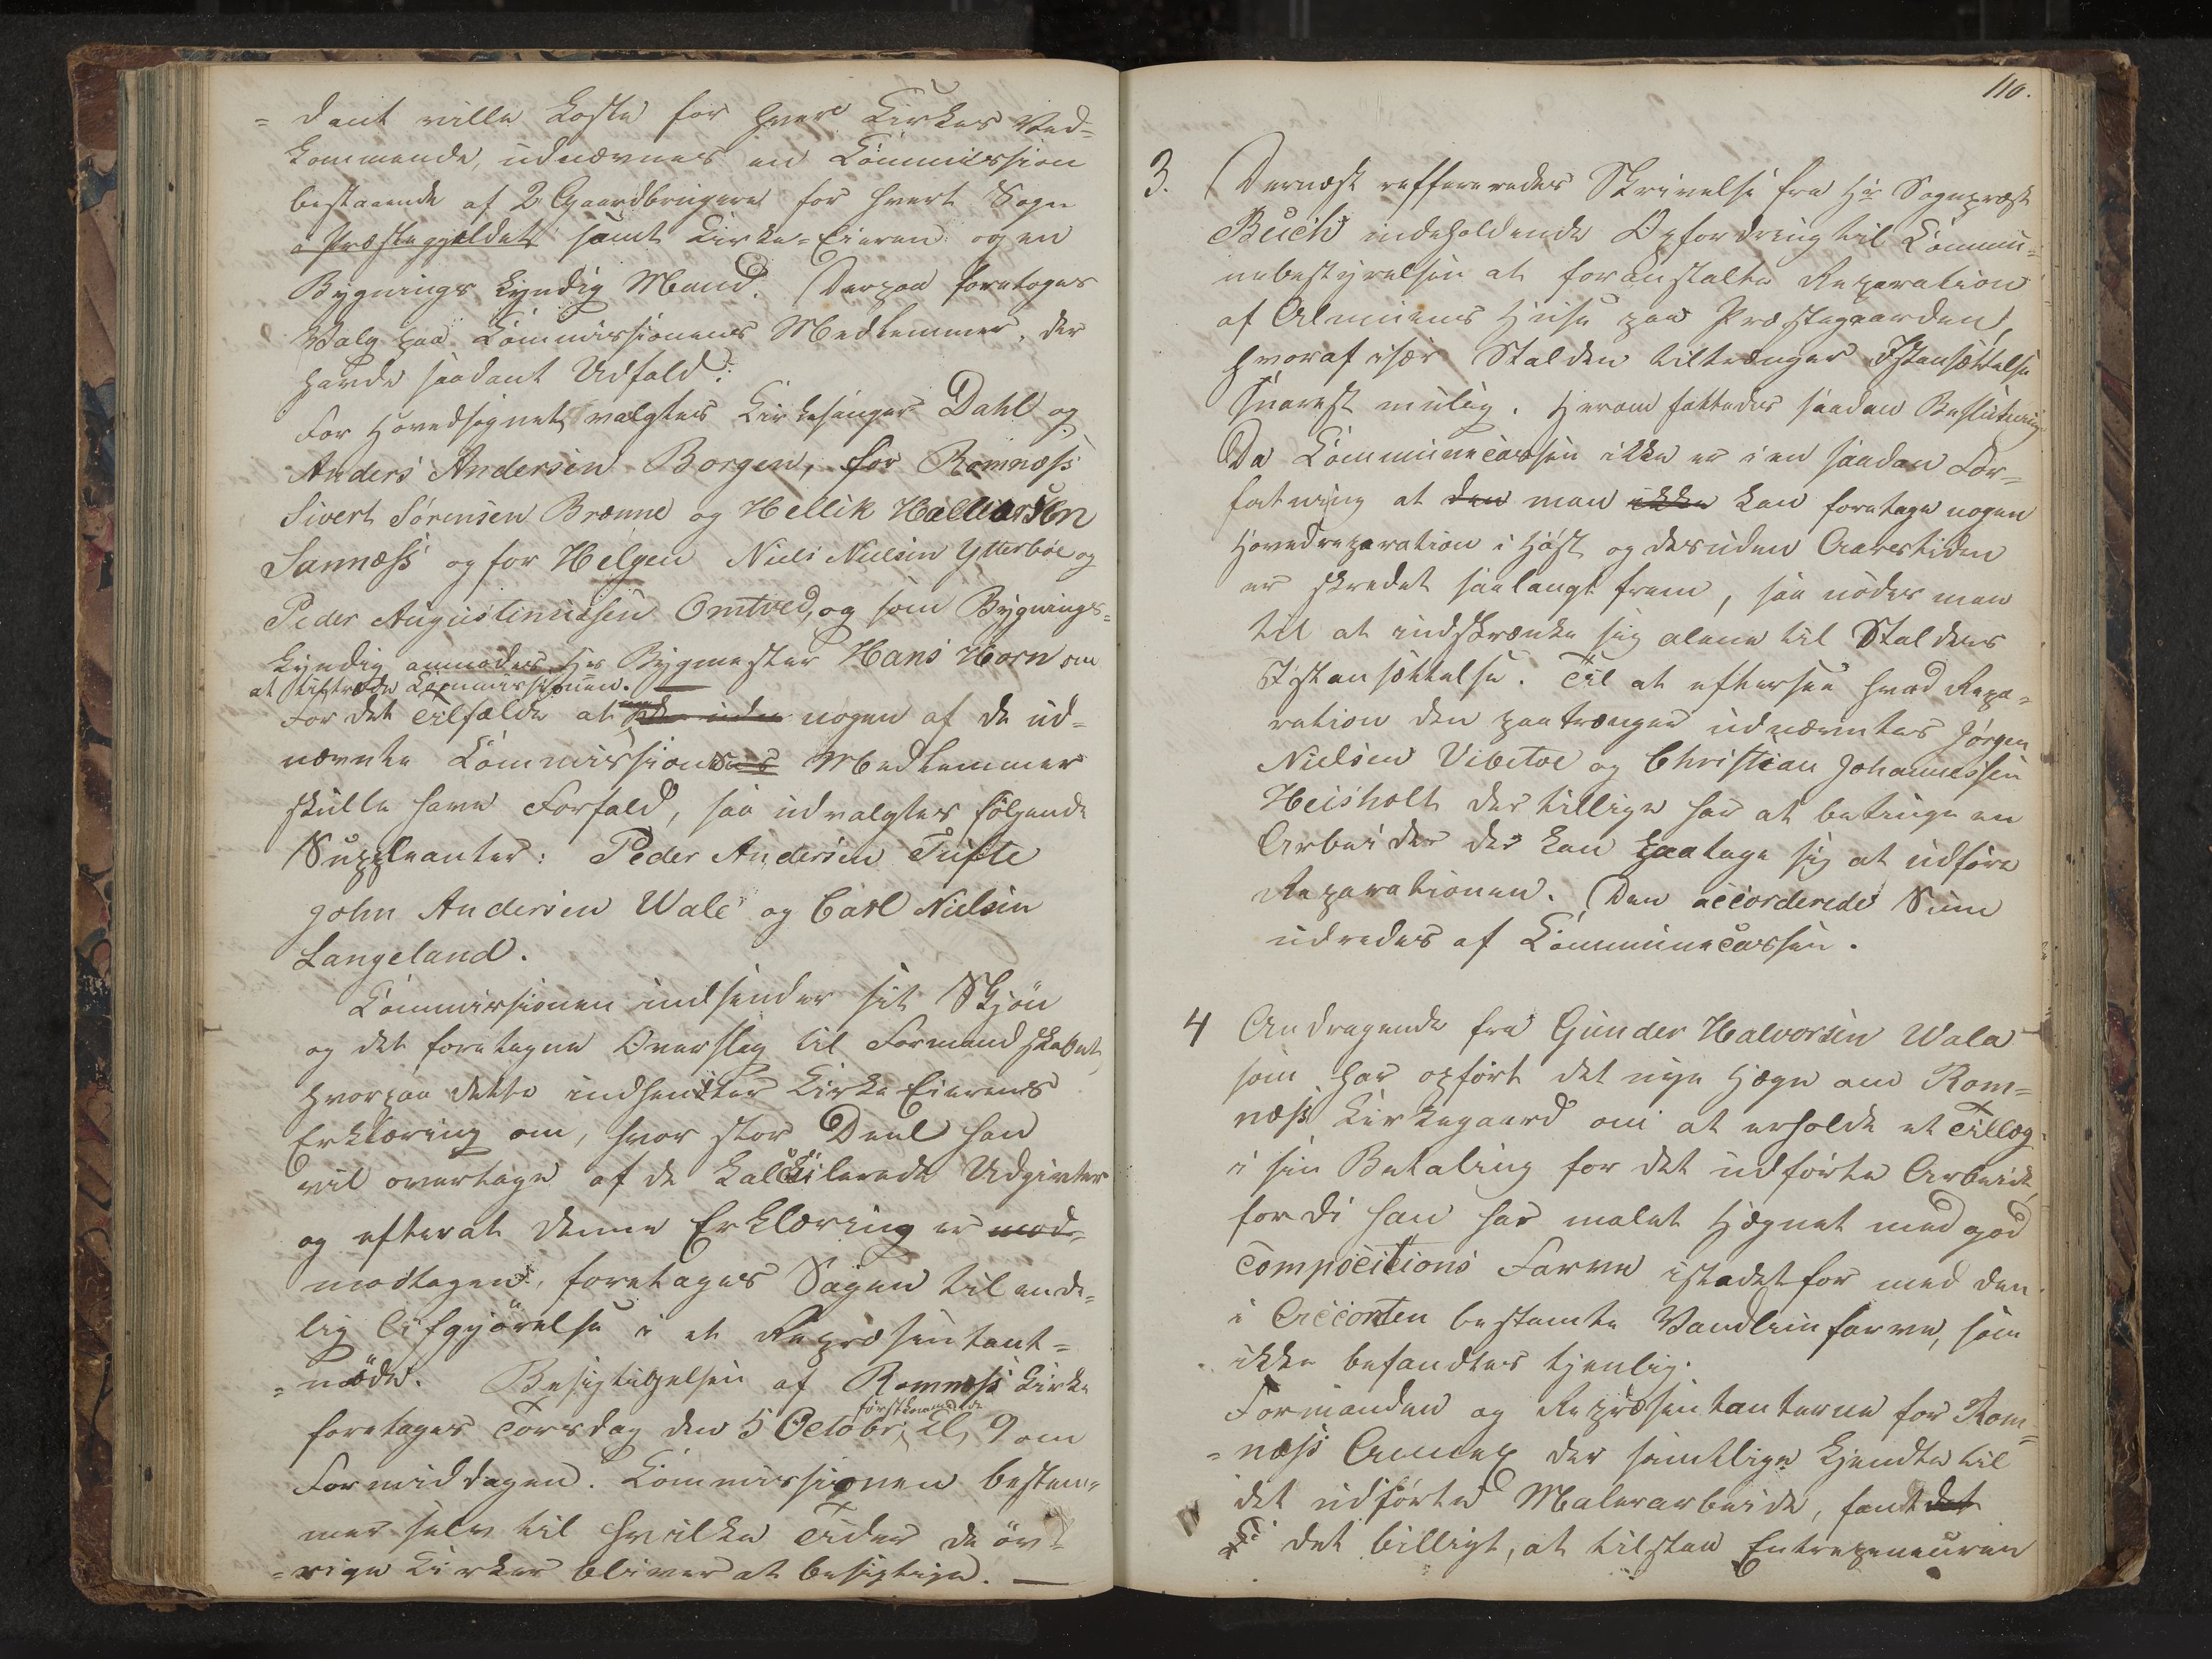 = dant ville koste for hver Kirkes Ved=
kommende, udnævnes en Commission
bestaaende af 2 Gaardbrugere for hvert Sogn
i Præstegjeldet samt Kirke-Eieren og en
Bygnings kyndig Mand. Derpaa foretoges
Valg paa Commissionens Medlemmer, der
havde saadant Udfald:
For Hovedsognet valgtes Kirkesanger Dahl og
Anders Andersen Borgen, for Romnæss
Sivert Sørensen Brænne og Hellik Halvorsen
Sannæss og for Helgen Niels Nielsen Ytterbøe og
Peder Augustinussen Omtved, og som Bygnings=
kyndig anmodes Hr Bygmester Hans Horn om
at tiltræde Commissionen.
For det Tilfælde at nogen af de ud=
nævnte Commissions Medlemmer
skulle have Forfald, saa udvalgtes følgende
Suppleanter: Peder Andersen Tufte
John Andersen Wale og Carl Nielsen
Langeland.
Commissionen indsender sit Skjøn
og det foretagne Overslag til Formandskabet,
hvorpaa dette indhenter Kirke Eierens
Erklæring om, hvor stor Deel han
vil overtage af de kalkulerede Udgivter
og efterat denne Erklæring er mod=
modtagen, foretages Sagen til ende=
lig Afgjørelse i et Repræsentant=
=møde. Besigtigelsen af Romnæss Kirke
førstkommende
foretages Torsdag den 5 Octobr, Kl, 9 om
Formiddagen. Commissionen bestem=
mer selv til hvilke Tider de öv=
=rige Kirker bliver at besigtige. —
110.
3. Dernæst reffereredes Skrivelse fra Hr Sognepræst
Buch indeholdende Opfordring til Commu=
nebestyrelsen at foranstalte Reparation
af Almuens Huse paa Præstegaarden,
hvoraf især Stalden tiltrænger Istansættelse
snarest mulig. Herom fattedes saadan Beslutning
Da Communecassen ikke er i en saadan For=
fatning at den man ikke kan foretage nogen
Hovedreparation i Høst og desuden Aarestiden
er skredet saalangt frem, saa nödes man
til at indskrænke sig alene til Staldens
Istansættelse. Til at eftersee hvad Repa=
ration den paatrænger udnævntes Jørgen
Nielsen Vibetoe og Christian Johannessen
Heisholt der tillige har at betinge en
Arbeider der kan paatage sig at udføre
Reparationen. Den accorderede Sum
udredes af Communecassen.
4 Andragende fra Gunder Halvorsen Wala
som har opført det nye Hægn om Rom=
næss Kirkegaard om at erholde et Tillæg
i sin Betaling for det udførte Arbeide,
fordi han har malet Hægnet med god
Compocitions Farve istedetfor med den
i Accorten bestemte Vandliimfarve, som
ikke befandtes tjenlig.
Formanden og Repræsentanterne for Rom=
=næss Annex der samtlige kjendte til
det udførte Malerarbeide, fandt det
det billigt, at tilstaa Entrepeneuren